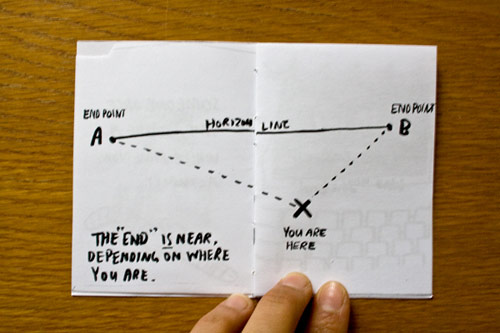 END POINT
A
HORIZON LINE
END POINT
B
X
YOU ARE
HERE
THE "END" IS NEAR,
DEPENDING ON WHERE
YOU ARE.